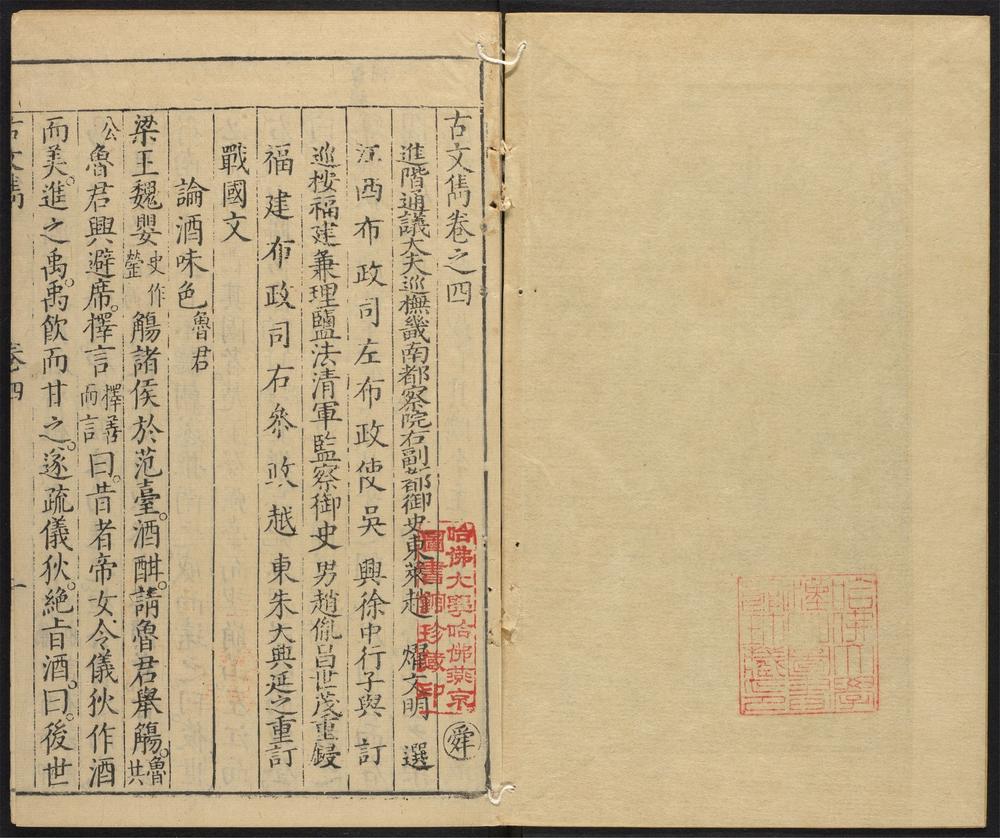 古文雋卷之四
舜
進階通議大夫巡撫畿南都察院右副都御史東萊趙燿文明 選
江西布政司左布政使吳興徐中行子與 訂
巡按福建兼理鹽法清軍監察御史男趙胤昌世茂重録
福建布政司右參政越東朱大典延之重訂
戰國文
論酒味色 魯君
梁王魏嬰 史作罃 觴諸侯於范臺。酒酣。請魯君舉觴。 魯共
公 魯君興避席。擇言 擇善而言 曰。昔者帝女令儀狄作酒
而美。進之禹。禹飲而甘之。遂疏儀狄。絕旨酒。曰。後世
古文雋 卷四 一
哈佛大學哈佛燕京
圖書館珍藏印